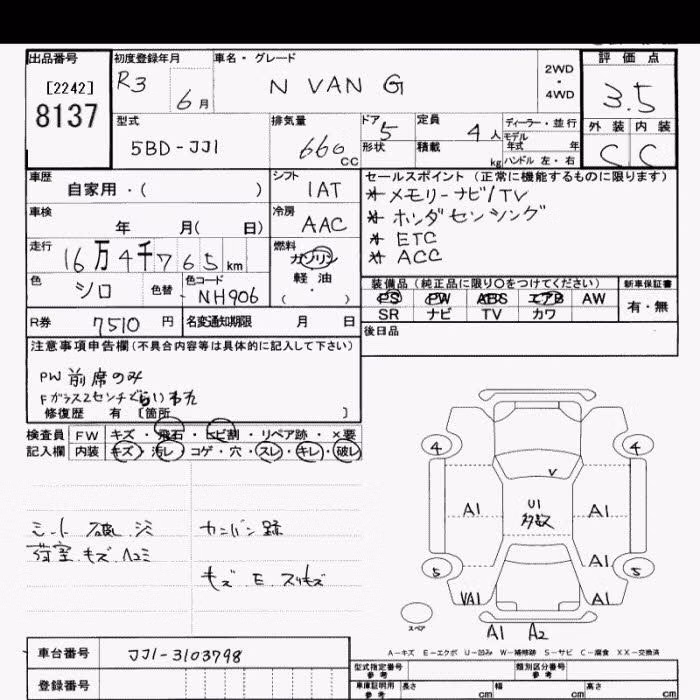 出品番号
[2242]
8137
初度登録年月
R3 6月
車名・グレード
N VAN G
2WD
・
4WD
評価点
3.5
外装 内装
C C
型式
5BD-JJ1
排気量
660 CC
ドア 5
形状
定員 4人
積載 kg
ディーラー・並行
モデル
年式 年
ハンドル 左・右
車歴
自家用・( )
シフト
IAT
セールスポイント (正常に機能するものに限ります)
* メモリーナビ/TV
* ホンダセンシング
* ETC
* ACC
車検
年 月( 日)
冷房
AAC
走行
16万4千765km
燃料
ガソリン
軽・油
( ・ )
色
シロ
色替
色コード
NH906
装備品 (純正品に限り○をつけてください)
PS PW ABS エアB AW
SR ナビ TV カワ
新車保証書
有・無
R券 7510 円
名変通知期限 月 日
後日品
注意事項申告欄(不具合内容等は具体的に記入して下さい)
PW 前席のみ
Fガラス2センチぐらいわれ
修復歴 有 〔箇所 〕
検査員 FW キズ・飛石・ヒビ割・リペア跡・×要
記入欄 内装 キズ・汚レ・コゲ・穴・スレ・キレ・破レ
シート 破 シミ
荷室 キズ ヘコミ
カンバン跡
キズ E スリキズ
4
4
V
A1
U1
多数
A1
A1
5
5
VA1
A1
スペア
A1 A2
A-キズ E-エクボ U-凹み W-補修跡 S-サビ C-腐食 XX-交換済
車台番号 JJ1-3103798
登録番号
型式指定番号
参考
類別区分番号
参考
車庫証明用
参考
長さ cm
幅 cm
高さ cm